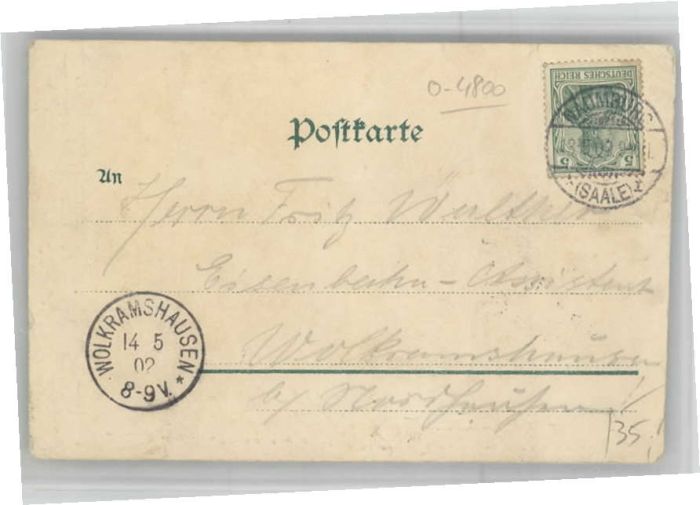 O-4800
DEUTSCHES REICH
5 5
NAUMBURG
(SAALE)
Postkarte
An
Herrn Fritz
Eisenbahn-Assistent
Wolkramshausen
b/ Nordhausen!
WOLKRAMSHAUSEN
14 5
02
8-9V.
35,